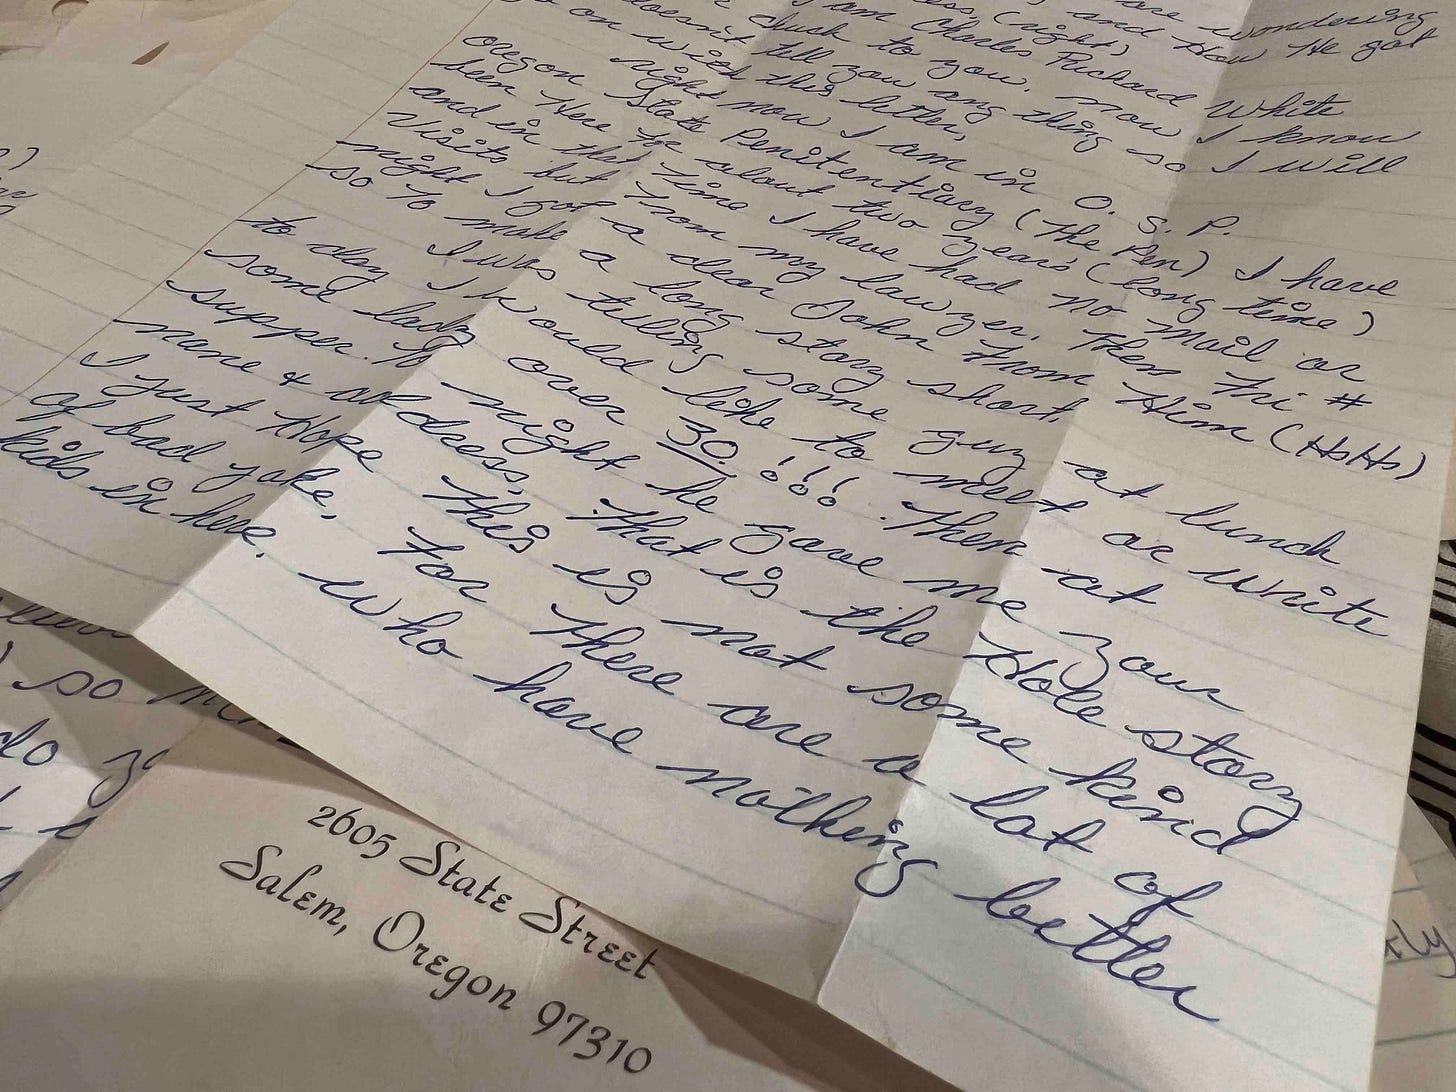 are wondering
(right) and How He got
I am Charles Richard White
to you. now I know
doesn't tell you any thing so I will
go on with this letter.
right now I am in O. S. P.
Oregon State Penitentiary (the Pen) I have
been Here for about two years (long time)
and in that time I have had no mail or
Visits but from my lawyer. Then Fri #
night I got a dear John from Him (HoHo)
so to make a long story short
I was telling some guy at lunch
to day I would like to meet or write
some lady over 30 !!! . Then at
supper. to night he gave me your
name & address. That is the Hole story
I just Hope this is not some kind
of bad joke, For there are a lot of
kids in here, who have nothing better
so
do
2605 State Street
Salem, Oregon 97310